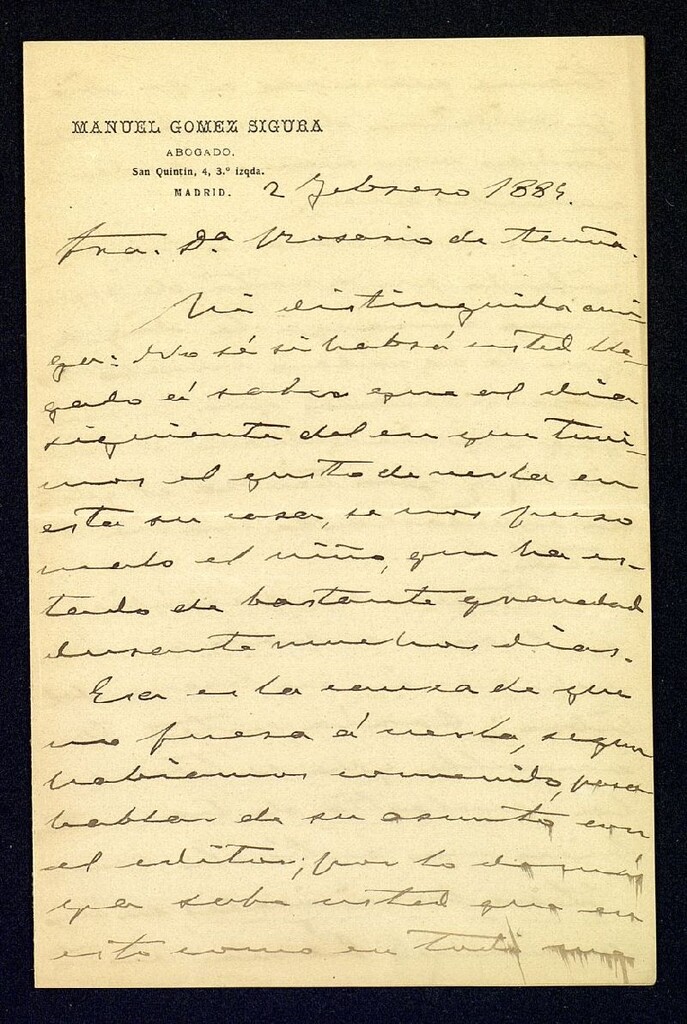 MANUEL GOMEZ SIGURA
ABOGADO.
San Quintín, 4, 3.º izqda.
MADRID.
2 Febrero 1889.
Sra. Dª Rosario de Acuña.
Mi distinguida ami-
ga: No sé si habrá usted lle-
gado á saber que el dia
siguiente del en que tuvi-
mos el gusto de verla en
esta su casa, se nos puso
malo el niño, que ha es-
tado de bastante gravedad
durante muchos dias.
Esa es la causa de que
no fuera á verla, segun
habiamos convenido, para
hablar de su asunto con
el editor; por lo demás
ya sabe usted que en
esto como en todo me